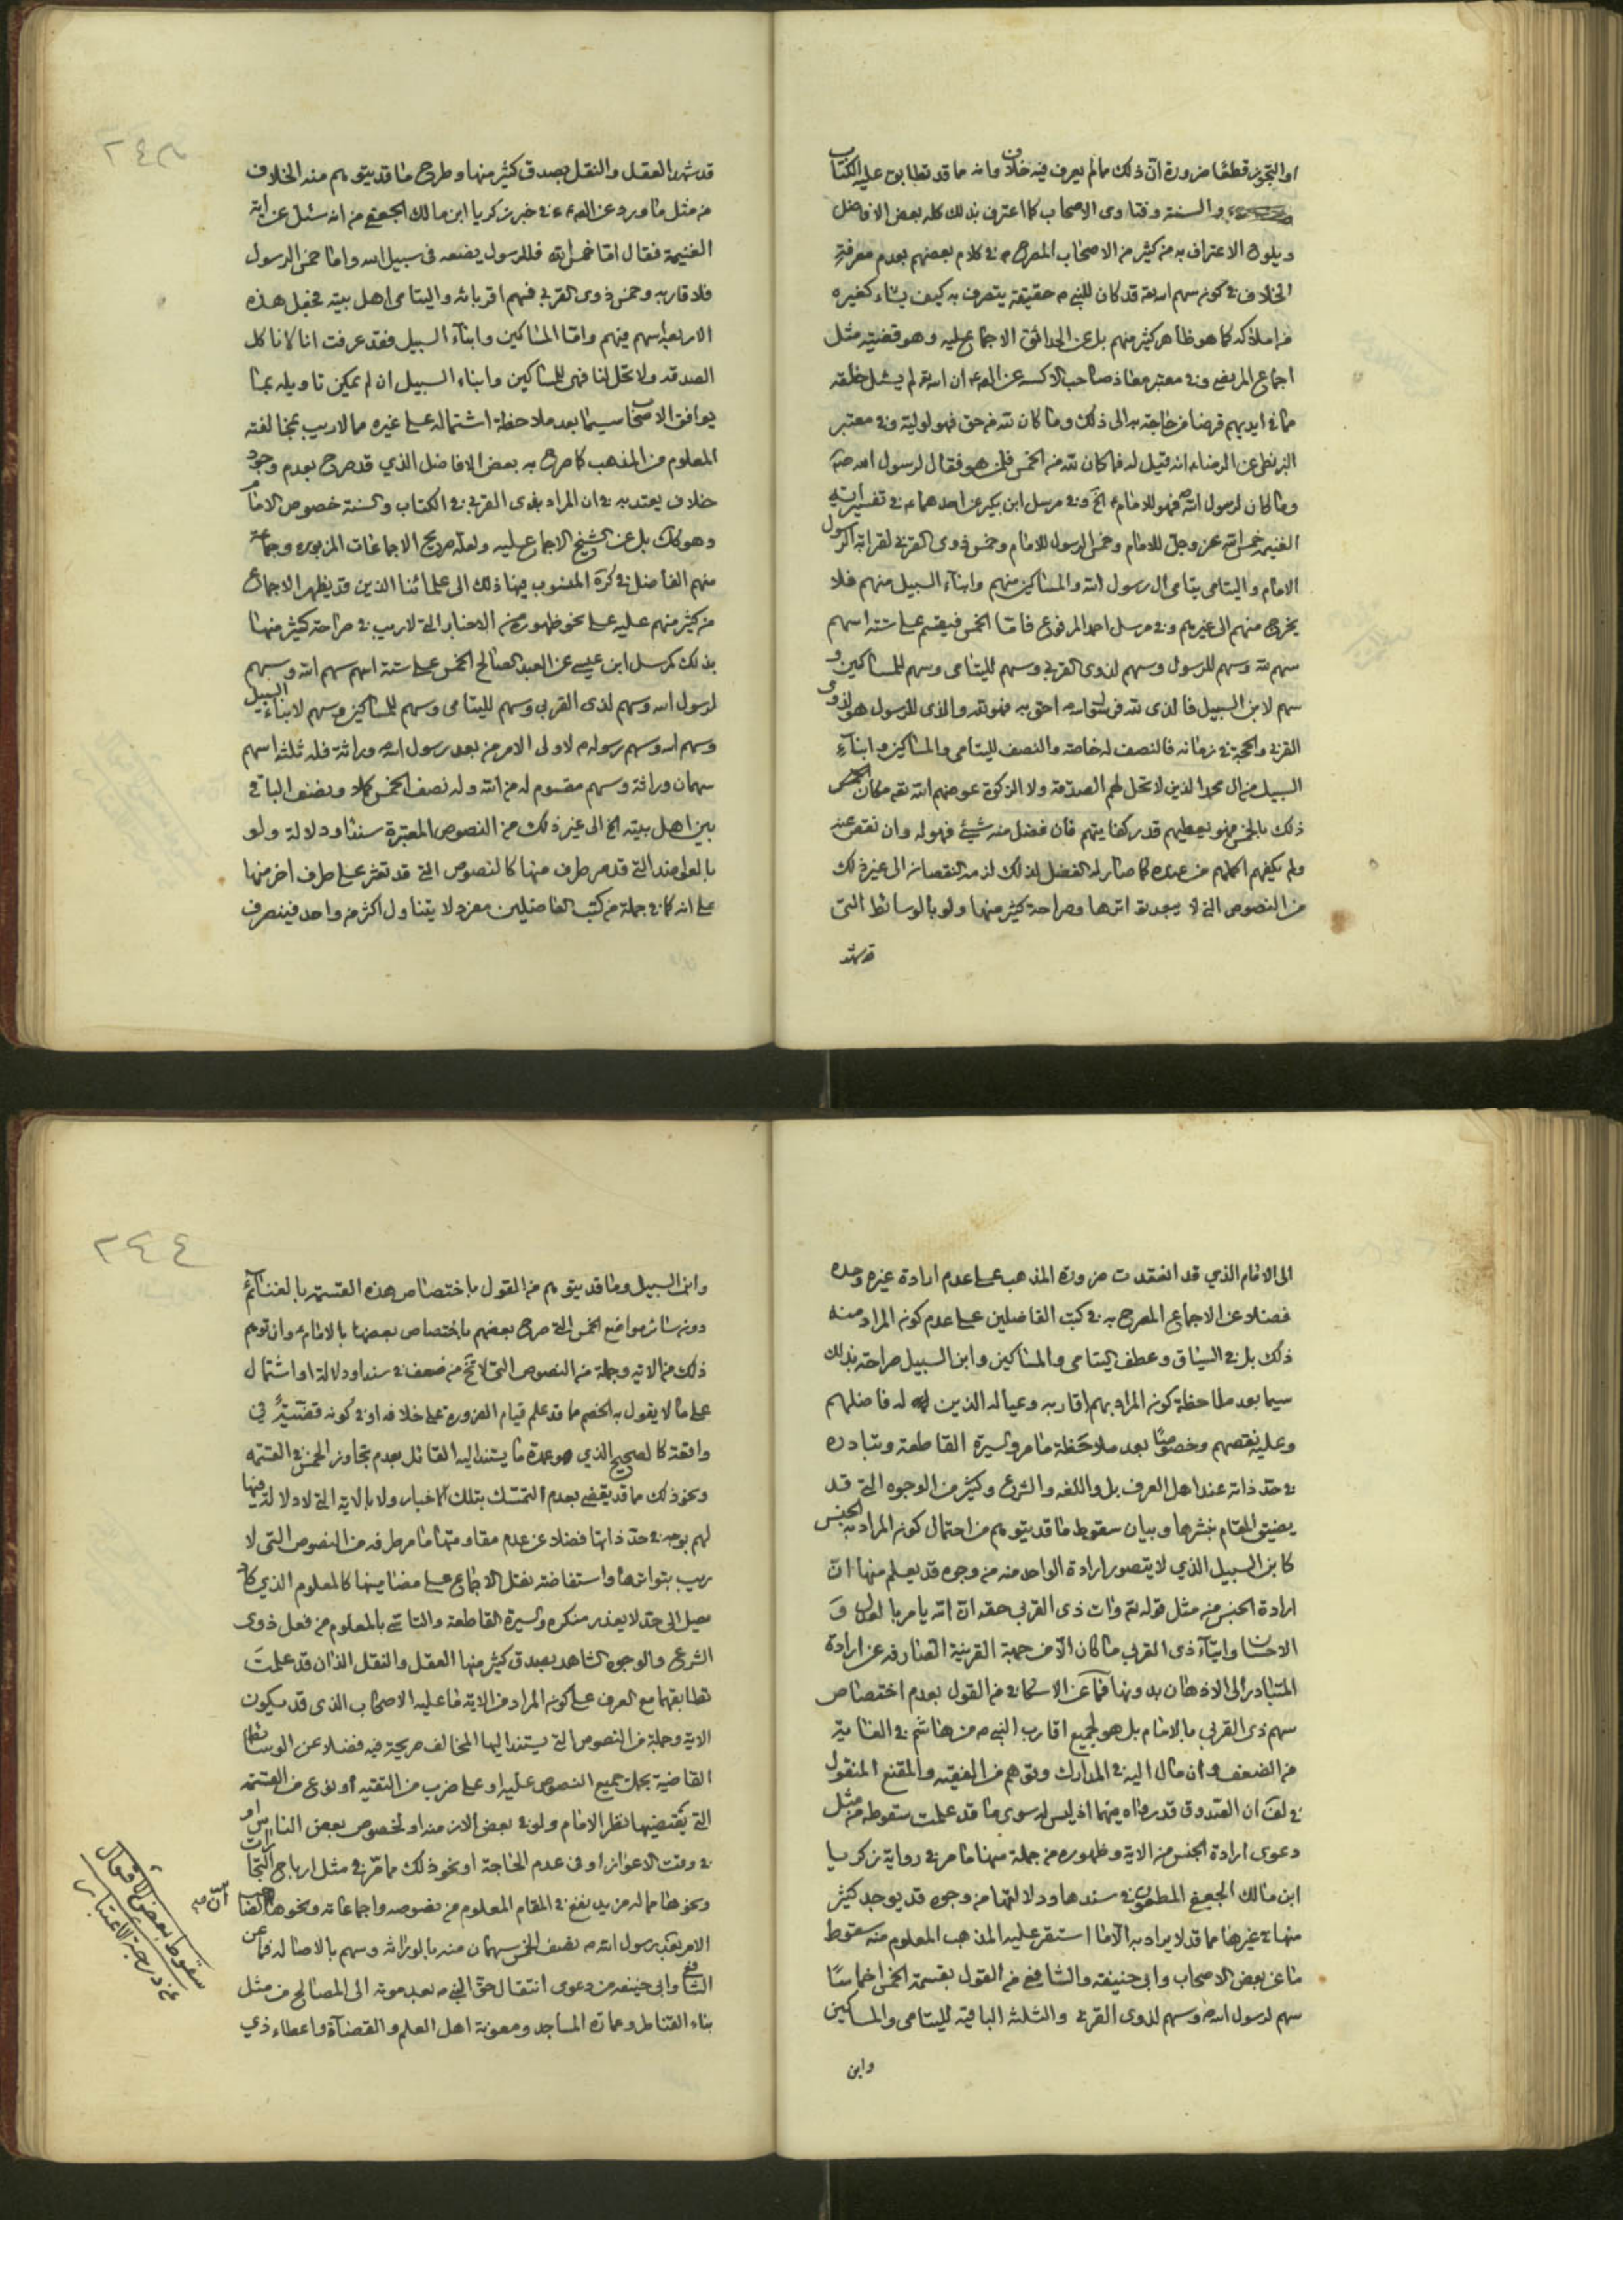 او التجوز قطعًا ضرورة ان ذلك مالم يعرف فيه خلاف وانه ما قد تطابق عليه الكتاب
والسنة وفتاوى الاصحاب كما اعترف بذلك كله بعض الافاضل
ويلوح الاعتراف به من كثير من الاصحاب المصرح في كلام بعضهم بعدم معرفة
الخلاف في كونه سهم الله قد كان للنبي ص حقيقة يتصرف به كيف يشاء كغيره
من املاكه كما هو ظاهر كثير منهم بل عن الحدائق الاجماع عليه وهو قضيته مثل
اجماع المرتضى وفي معتبر معاذ صاحب الاكسية عن الص ع ان الله لم يسئل خلقه
مما في ايديهم قرضا من حاجة به الى ذلك وما كان لله من حق فهو لوليه وفي معتبر
البزنطي عن الرضا ع انه قيل له فما كان لله من الخمس فلمن هو فقال لرسول الله ص
وما كان لرسول الله ص فهو للامام ع الخ وفي مرسل ابن بكير عن احدهما ع في تفسير اية
الغنيمة خمس الله عز وجل للامام وخمس الرسول للامام وخمس ذوى القربى لقرابة الرسول
الامام واليتامى يتامى ال رسول الله والمساكين منهم وابناء السبيل منهم فلا
يخرج منهم الى غيرهم وفي مرسل احمد المرفوع فاما الخمس فيقسم على ستة اسهم
سهم لله وسهم للرسول وسهم لذوى القربى وسهم لليتامى وسهم للمساكين و
سهم لابن السبيل فالذى لله فلرسوله احق به فهو له والذى للرسول هو لذو
القربى والحجة في زمانه فالنصف له خاصة والنصف لليتامى والمساكين وابناء
السبيل من ال محمد الذين لا تحل لهم الصدقة ولا الزكوة عوضهم الله تعه مكان
ذلك بالخمس فهو يعطيهم قدر كفايتهم فان فضل منه شيء فهو له وان نقص عنه
ولم يكفهم اكمله لهم من عنده كما صار له الفضل لذلك لزمه النقصان الى غير ذلك
من النصوص التي لا يبعد تواترها وصراحة كثير منها ولو بالوسائط التي
قد شهد
٢٤٣
قد شهد العقل والنقل بصدق كثير منها وطرح ما قد يتوهم منه الخلاف
من مثل ما ورد عن الص ع في خبر زكريا ابن مالك الجعفي من انه سئل عن اية
الغنيمة فقال اما خمس الله فللرسول يضعه في سبيل الله واما خمس الرسول
فلاقاربه وخمس ذوى القربى فهم اقربائه واليتامى اهل بيته فجعل هذه
الاربعة اسهم فيهم واما المساكين وابناء السبيل فقد عرفت انا لا ناكل
الصدقة ولا تحل لنا فهى للمساكين وابناء السبيل ان لم يمكن تاويله بما
يوافق الاصحاب سيما بعد ملاحظة اشتماله على غيره مما لا ريب بمخالفته
المعلوم من المذهب كما صرح به بعض الافاضل الذي قد صرح بعدم وجود
خلاف يعتد به في ان المراد بذى القربى في الكتاب والسنة خصوص الامام
وهو كك بل عن الشيخ الاجماع عليه ولعله صريح الاجماعات المزبورة وجماعة
منهم الفاضل في كره المنسوب فيها ذلك الى علمائنا الذين قد يظهر الاجماع
من كثير منهم عليه على نحو ظهوره من الاخبار التي لا ريب في صراحة كثير منها
بذلك كمرسل ابن عيسى عن العبد الصالح الخمس على ستة اسهم سهم الله وسهم
لرسول الله وسهم لذى القربى وسهم لليتامى وسهم للمساكين وسهم لابناء السبيل
وسهم الله وسهم رسوله ص لاولى الامر من بعد رسول الله ص وراثة فله ثلثة اسهم
سهمان وراثة وسهم مقسوم له من الله وله نصف الخمس كملا ونصف الباقى
بين اهل بيته الخ الى غير ذلك من النصوص المعتبرة سندا ودلالة ولو
بالعواضد التي قد مر طرف منها كالنصوص التي قد تعثر على طرف اخر منها
على انه كما في جملة من كتب الفاضلين مفرد لا يتناول اكثر من واحد فينصرف
الى الامام الذي قد انعقدت ضرورة المذهب على عدم ارادة غيره وحده
فضلا عن الاجماع المصرح به في كتب الفاضلين على عدم كونه المراد منه
ذلك بل في السياق وعطف اليتامى والمساكين وابن السبيل صراحته بذلك
سيما بعد ملاحظة كونه المراد بهم اقاربه وعياله الذين له فاضلهم
وعليه نقصهم وخصوصًا بعد ملاحظة ما مر والسيرة القاطعة وتبادره
في حد ذاته عند اهل العرف بل واللغه والشرع وكثير من الوجوه التي قد
يضيق المقام بنشرها وبيان سقوط ما قد يتوهم من احتمال كونه المراد به الجنس
كابن السبيل الذي لا يتصور ارادة الواحد منه من وجوه قد يعلم منها ان
ارادة الجنس من مثل قوله تع وات ذى القربى حقه ان الله يامر بالعدل و
الاحسان وايتاء ذى القربى ما كان الا من جهة القرينة الصارفه عن ارادة
المتبادر الى الاذهان بدونها فما عن الاسكافي من القول بعدم اختصاص
سهم ذى القربى بالامام بل هو لجميع اقارب النبي ص من هاشم في الغاية
من الضعف وان مال اليه في المدارك وتوهم من الفقيه والمقنع المنقول
في لف ان الصدوق قدرواه فيهما اذ ليس له سوى ما قد علمت سقوطه من مثل
دعوى ارادة الجنس من الاية وظهوره من جملة منها ما مر في رواية زكريا
ابن مالك الجعفي المطعون في سندها ودلالتها من وجوه قد يوجد كثير
منها في غيرها مما قد لا يراد به الا ما استقر عليه المذهب المعلوم منه سقوط
ما عن بعض الاصحاب وابى حنيفة والشافعي من القول بقسمة الخمس اخماسًا
سهم لرسول الله ص وسهم لذوى القربى والثلثة الباقية لليتامى والمساكين
وابن
٢٤٤
وابن السبيل وما قد يتوهم من القول باختصاص هذه القسمة بالغنائم
دون سائر مواضع الخمس التي صرح بعضهم باختصاص بعضها بالامام ع وان توهم
ذلك من الاية وجملة من النصوص التي لا تخ من ضعف في سند او دلالة او اشتمال
على ما لا يقول به الخصم ما قد علم قيام الضرورة على خلافه او في كونه قضية في
واقعة كالصحيح الذي هو عمدة ما يستند اليه القائل بعدم تجاوز الخمس في القسمة
ونحو ذلك مما قد يقضي بعدم التمسك بتلك الاخبار ولا بالاية التي لا دلالة فيها
لهم بوجه في حد ذاتها فضلا عن عدم مقاومتها ما مر طرفه من النصوص التي لا
ريب بتواترها واستفاضة نقل الاجماع على مضامينها كالمعلوم الذي كاد
يصل الى حد لا يعذر منكره والسيرة القاطعة والتاسي بالمعلوم من فعل ذوى
الشرع والوجوه الشاهد بصدق كثير منها العقل والنقل الذان قد علمت
تطابقهما مع العرف على كونه المراد من الاية ما عليه الاصحاب الذى قد يكون
الاية وجملة من النصوص التي يستند اليها المخالف صريحة فيه فضلا عن الوسائط
القاضية بحمل جميع النصوص عليه او على ضرب من التقيه او نوع من القسمة
التي يقتضيها نظر الامام ولو في بعض الازمنه او لخصوص بعض الناس او
في وقت الاعواز او في عدم الحاجة او نحو ذلك مما مر في مثل ارباح التجارات
ونحوها مما له مزيد نفع في المقام المعلوم من نصوصه واجماعاته ونحوها ايضا ان
الامر بعد رسول الله ص نصف الخمس سهمان منه بالوراثة وسهم بالاصالة فما عن
الشافعي وابى حنيفه من دعوى انتقال حق النبي ص بعد موته الى المصالح من مثل
بناء القناطر وعمارة المساجد ومعونة اهل العلم والقضاة واعطاء ذي
سقوط بعض الاقوال
عن درجة الاعتبار